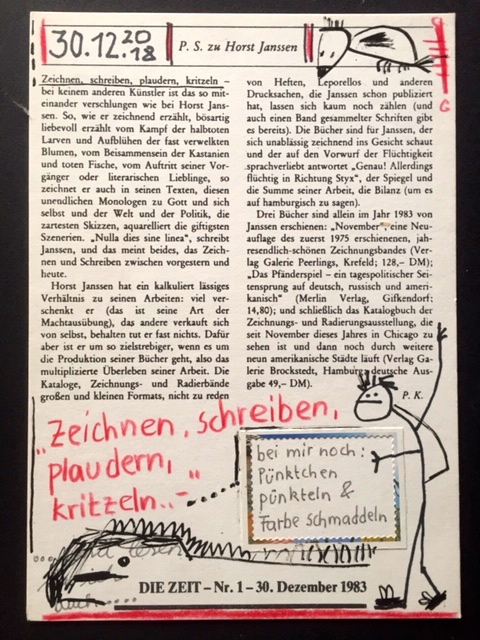 30.12.2018
P. S. zu Horst Janssen
Zeichnen, schreiben, plaudern, kritzeln –
bei keinem anderen Künstler ist das so mit-
einander verschlungen wie bei Horst Jans-
sen. So, wie er zeichnend erzählt, bösartig
liebevoll erzählt vom Kampf der halbtoten
Larven und Aufblühen der fast verwelkten
Blumen, vom Beisammensein der Kastanien
und toten Fische, vom Auftritt seiner Vor-
gänger oder literarischen Lieblinge, so
zeichnet er auch in seinen Texten, diesen
unendlichen Monologen zu Gott und sich
selbst und der Welt und der Politik, die
zartesten Skizzen, aquarelliert die giftigsten
Szenerien. „Nulla dies sine linea“, schreibt
Janssen, und das meint beides, das Zeich-
nen und Schreiben zwischen vorgestern und
heute.
Horst Janssen hat ein kalkuliert lässiges
Verhältnis zu seinen Arbeiten: viel ver-
schenkt er (das ist seine Art der
Machtausübung), das andere verkauft sich
von selbst, behalten tut er fast nichts. Dafür
aber ist er um so zielstrebiger, wenn es um
die Produktion seiner Bücher geht, also das
multiplizierte Überleben seiner Arbeit. Die
Kataloge, Zeichnungs- und Radierbände
großen und kleinen Formats, nicht zu reden
von Heften, Leporellos und anderen
Drucksachen, die Janssen schon publiziert
hat, lassen sich kaum noch zählen (und
auch einen Band gesammelter Schriften gibt
es bereits). Die Bücher sind für Janssen, der
sich unablässig zeichnend ins Gesicht schaut
und der auf den Vorwurf der Flüchtigkeit
sprachverliebt antwortet „Genau! Allerdings
flüchtig in Richtung Styx“, der Spiegel und
die Summe seiner Arbeit, die Bilanz (um es
auf hamburgisch zu sagen).
Drei Bücher sind allein im Jahr 1983 von
Janssen erschienen: „November“, eine Neu-
auflage des zuerst 1975 erschienenen, jah-
resendlich-schönen Zeichnungsbandes (Ver-
lag Galerie Peerlings, Krefeld; 128,– DM);
„Das Pfänderspiel – ein tagespolitischer Sei-
tensprung auf deutsch, russisch und ameri-
kanisch“ (Merlin Verlag, Gifkendorf;
14,80); und schließlich das Katalogbuch der
Zeichnungs- und Radierungsausstellung, die
seit November dieses Jahres in Chicago zu
sehen ist und dann noch durch weitere
neun amerikanische Städte läuft (Verlag Ga-
lerie Brockstedt, Hamburg, deutsche Aus-
gabe 49,– DM).
P. K.
„Zeichnen, schreiben,
plaudern,
kritzeln..“
bei mir noch:
Pünktchen
pünkteln &
Farbe schmaddeln
DIE ZEIT – Nr. 1 – 30. Dezember 1983